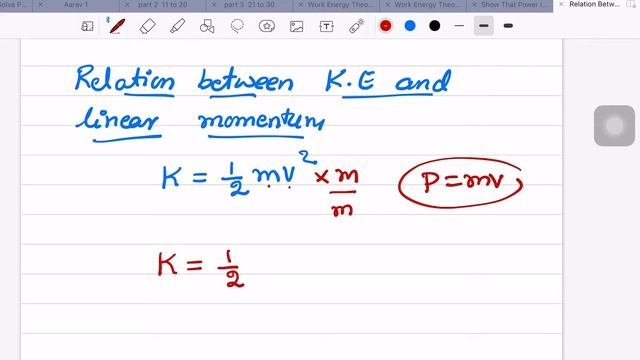 Solve P... Aarav 1 part 2 11 to 20 part 3 21 to 30 Work Energy Theo... Work Energy Theo... Show That Power I... Relation Betw...
Relation between K.E and
linear momentum
K = 1/2 mv² × m/m P = mv
K = 1/2